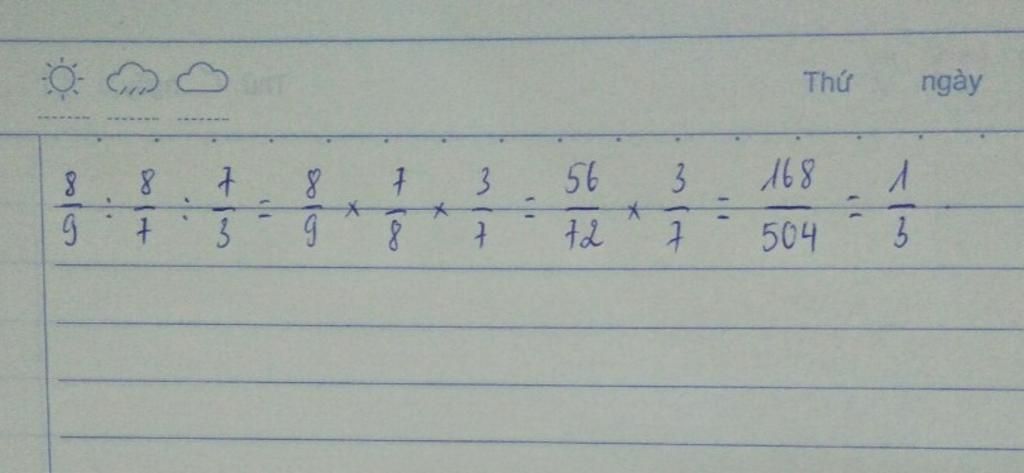 Thứ ngày
8/9 : 8/7 : 7/3 = 8/9 × 7/8 × 3/7 = 56/72 × 3/7 = 168/504 = 1/3